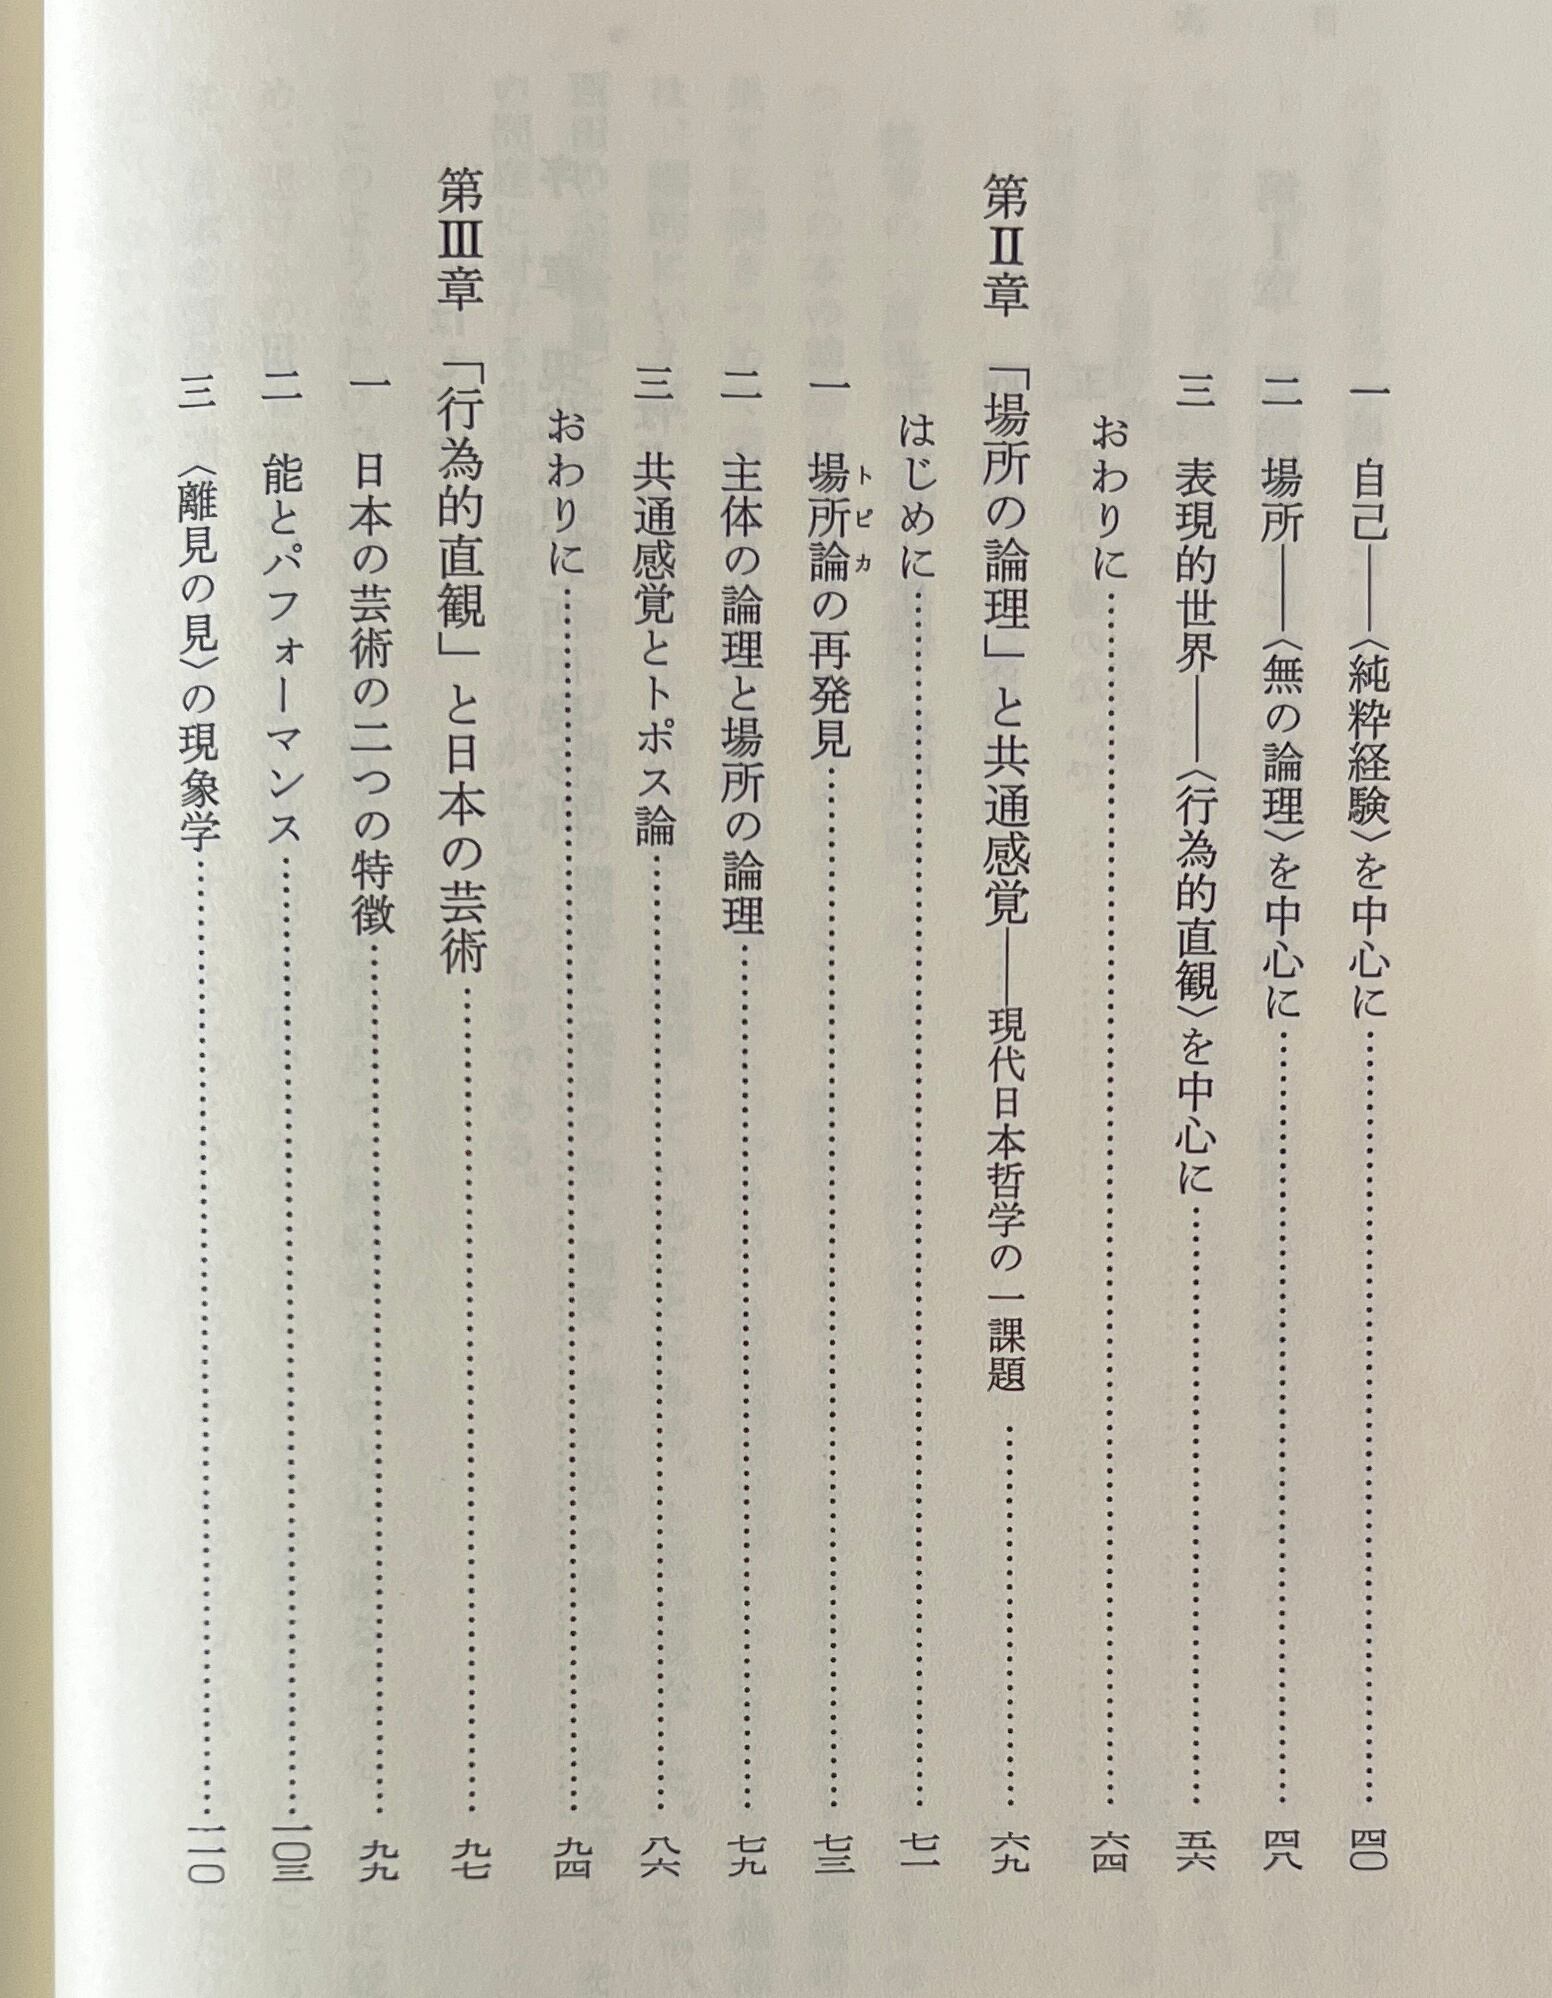 一 自己――〈純粋経験〉を中心に……四〇
二 場所――〈無の論理〉を中心に……四八
三 表現的世界――〈行為的直観〉を中心に……五六
おわりに……六四
第Ⅱ章 「場所の論理」と共通感覚――現代日本哲学の一課題……六九
はじめに……七一
一 場所論トピカの再発見……七三
二 主体の論理と場所の論理……七九
三 共通感覚とトポス論……八六
おわりに……九四
第Ⅲ章 「行為的直観」と日本の芸術……九七
一 日本の芸術の二つの特徴……九九
二 能とパフォーマンス……一〇三
三 〈離見の見〉の現象学……一一〇